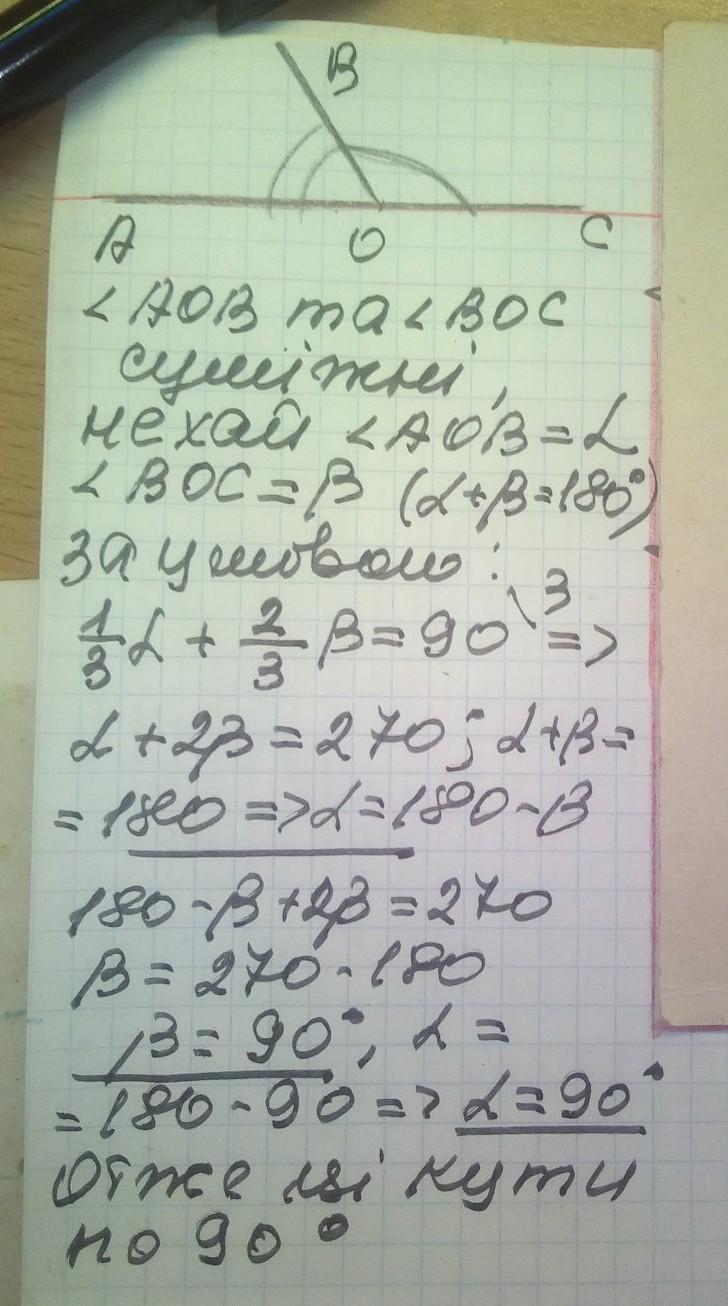 B
A O C
<AOB та <BOC
суміжні,
нехай <AOB=α
<BOC=β (α+β=180°)
за умовою:
1/3α + 2/3β=90 \3 =>
α+2β=270; α+β=
=180=>α=180-β
180-β+2β=270
β=270-180
β=90°, α=
=180-90=>α=90°
Отже ці кути
по 90°